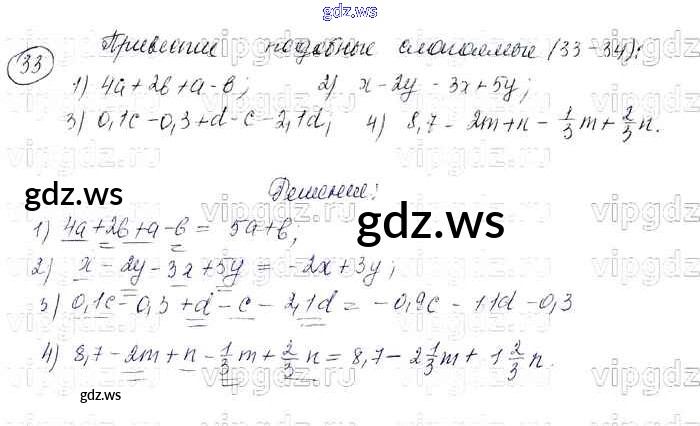 gdz.ws
33 Привести подобные слагаемые (33-34):
1) 4a+2b+a-b; 2) x-2y-3x+5y;
3) 0,1c-0,3+d-c-2,1d; 4) 8,7-2m+n-1/3m+2/3n.
Решение:
gdz.ws
gdz.ws
1) 4a+2b+a-b = 5a+b;
2) x-2y-3x+5y = -2x+3y;
3) 0,1c-0,3+d-c-2,1d = -0,9c-1,1d-0,3
4) 8,7-2m+n-1/3m+2/3n = 8,7-2 1/3m+1 2/3n.
gdz.ws